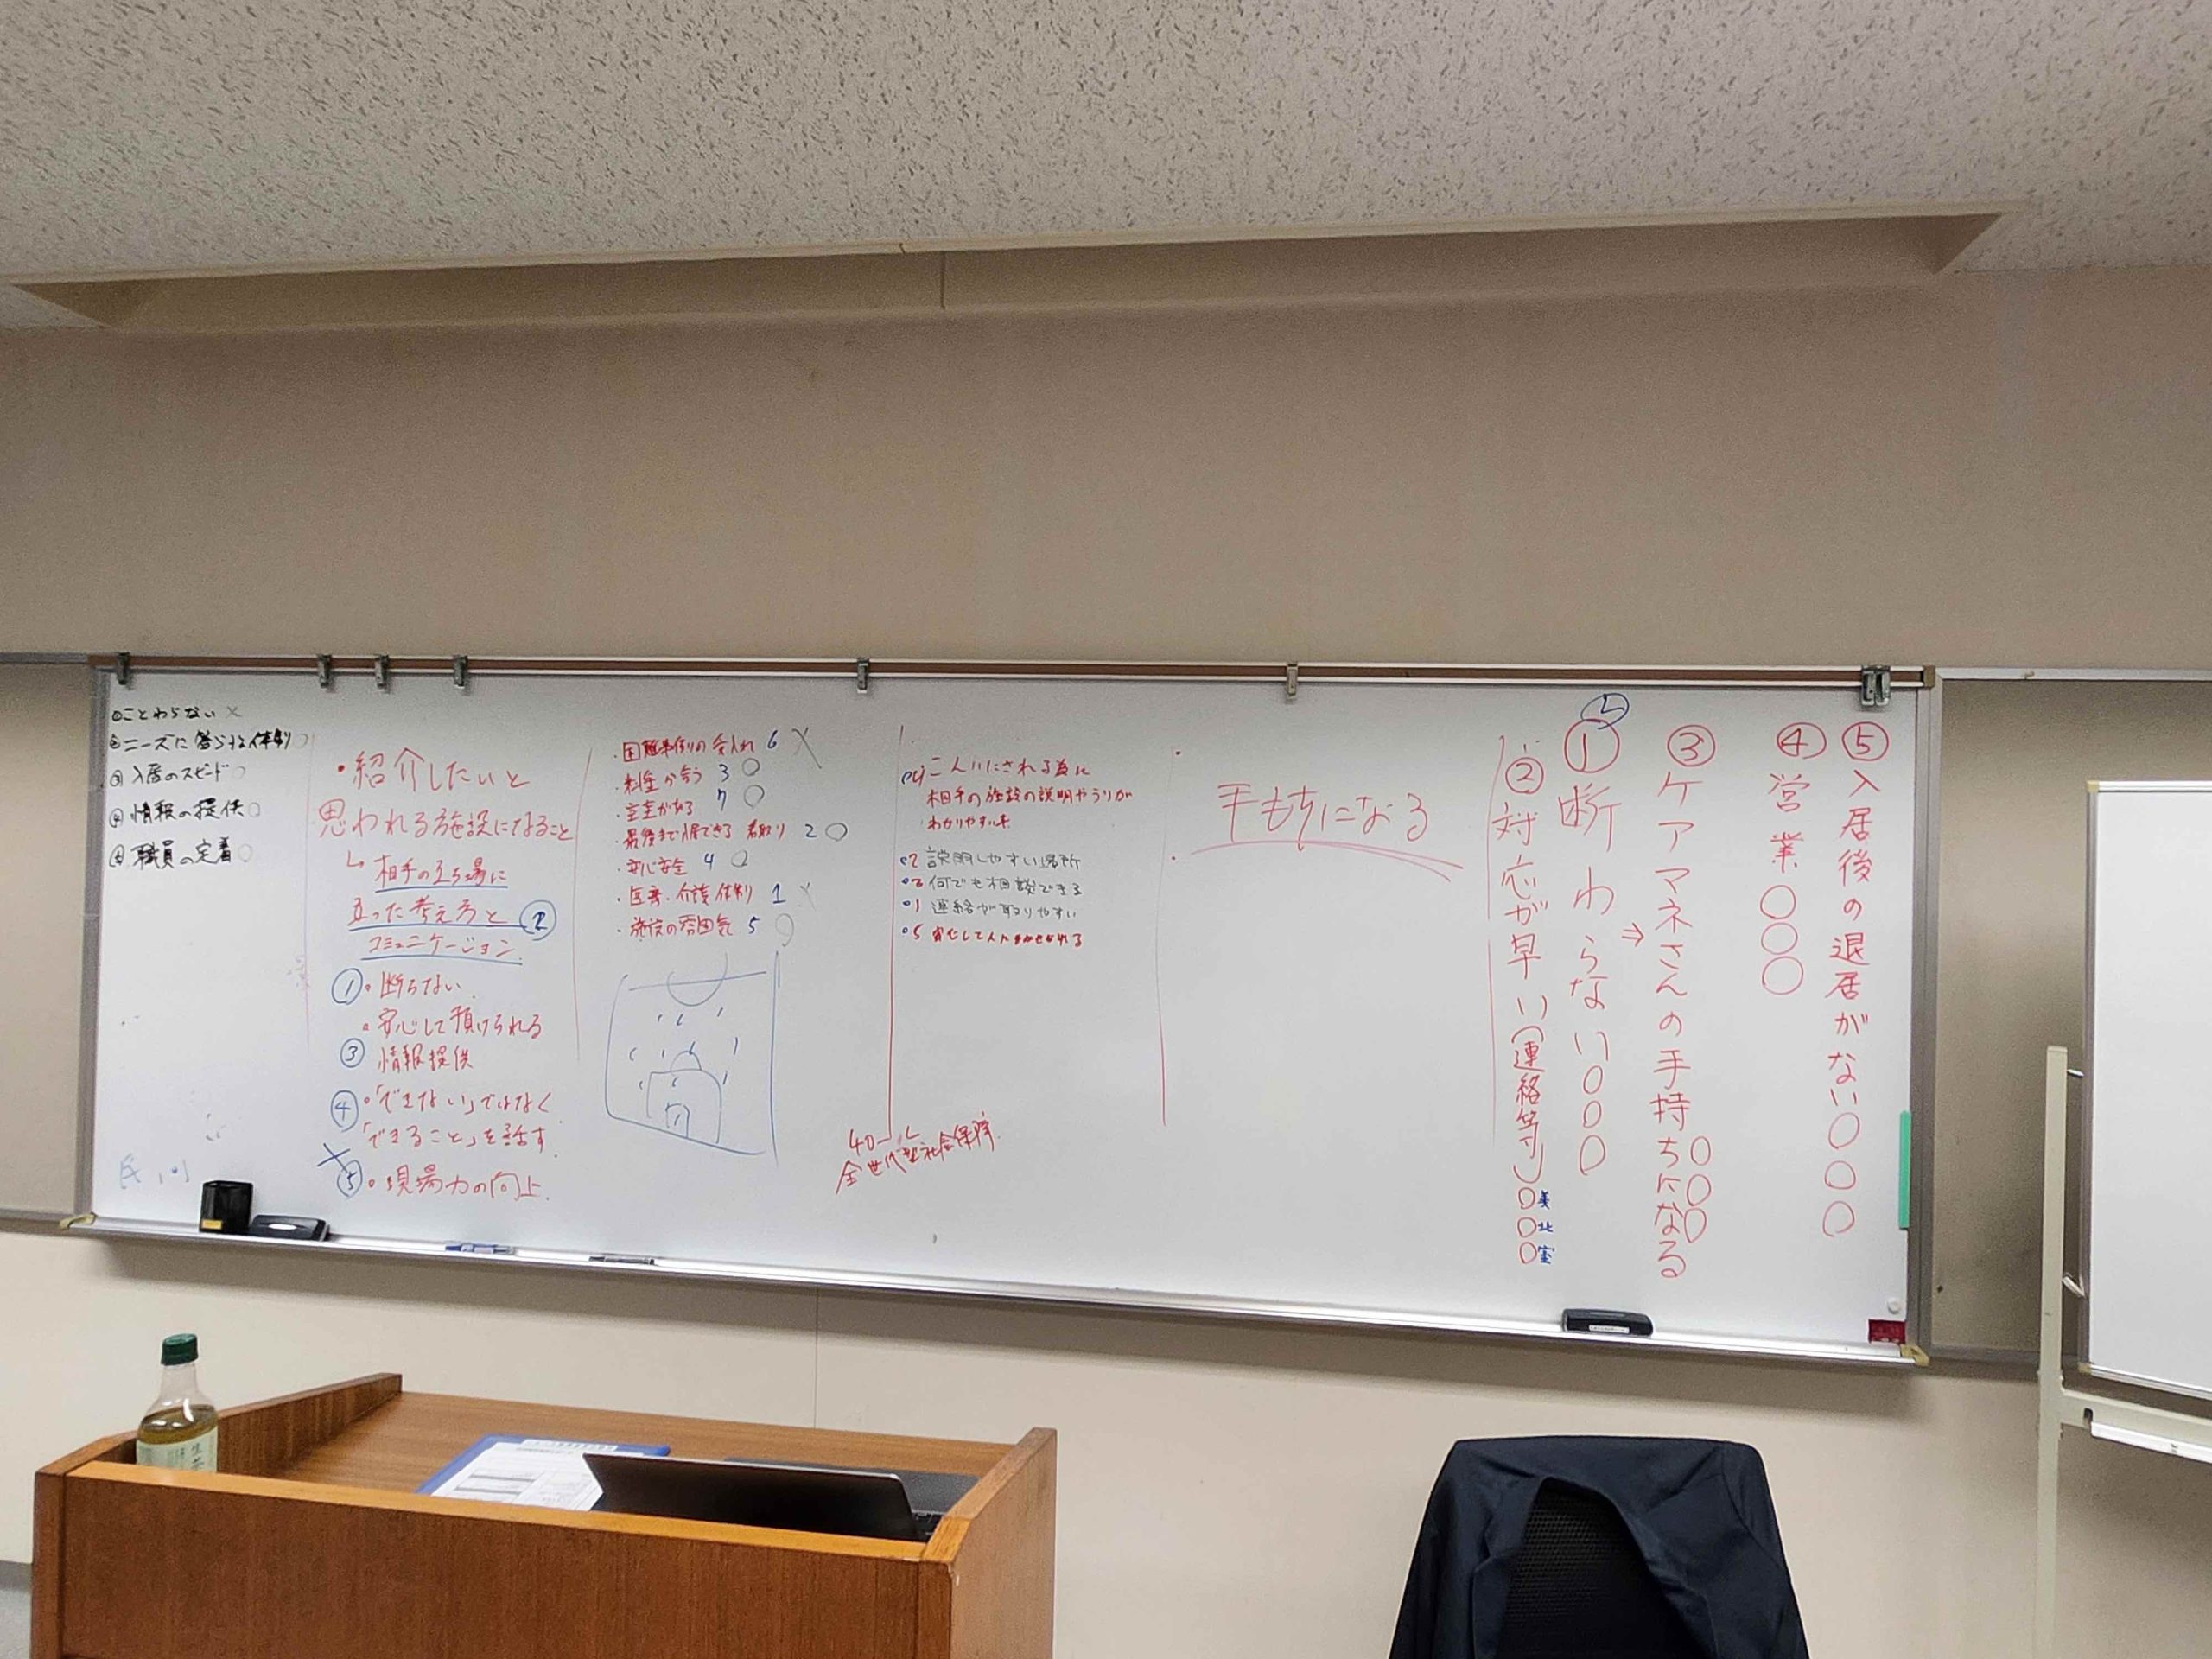 ①ことわらない ×
②ニーズに答られる体制 ○
③入居のスピード ○
④情報の提供 ○
⑤職員の定着 ○
・紹介したいと
思われる施設になること
↳相手の立ち場に
立った考え方と ②
コミュニケーション
①・断らない
・安心して預けられる
③ 情報提供
④・「できない」ではなく
「できること」を話す
⑤・現場力の向上
・困難事例の受入れ 6 ×
・料金が合う 3 ○
・空室がある 7 ○
・最後まで居できる 看取り 2 ○
・安心安全 4 ○
・医療・介護体制 1 ×
・施設の雰囲気 5 ○
される為に
相手の施設の説明やうりが
わかりやすい
・2 説明しやすい場所
・3 何でも相談できる
・1 連絡が取りやすい
・5 安心して
40
全世代型社会保障
手もちになる
⑤入居後の退居がない○○○
④営業○○○
③ケアマネさんの手持ちになる○○○
⇒
①断わらない○○○
②対応が早い(連絡等)○○○
美
北
室
生茶